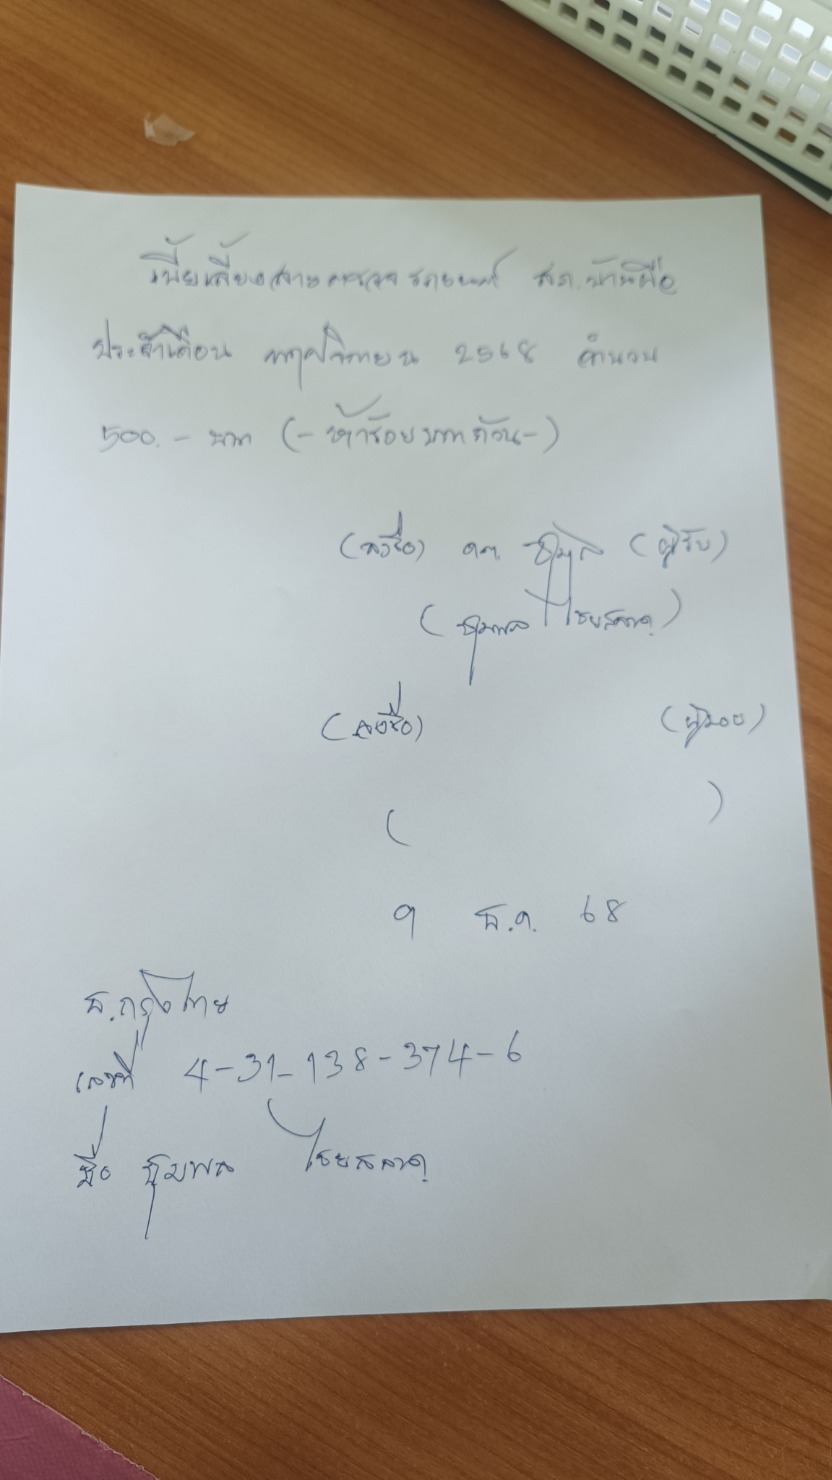 เบี้ยเลี้ยงสายตรวจรถยนต์ สภ.บ้านผือ
ประจำเดือน พฤศจิกายน 2568 จำนวน
500.- บาท (-ห้าร้อยบาทถ้วน-)
(ลงชื่อ) ด.ต. ชุมพล (ผู้รับ)
(ชุมพล ไชยสลาด)
(ลงชื่อ) (ผู้มอบ)
( )
9 ธ.ค. 68
ธ.กรุงไทย
เลขที่ 4-31-138-374-6
ชื่อ ชุมพล ไชยสลาด